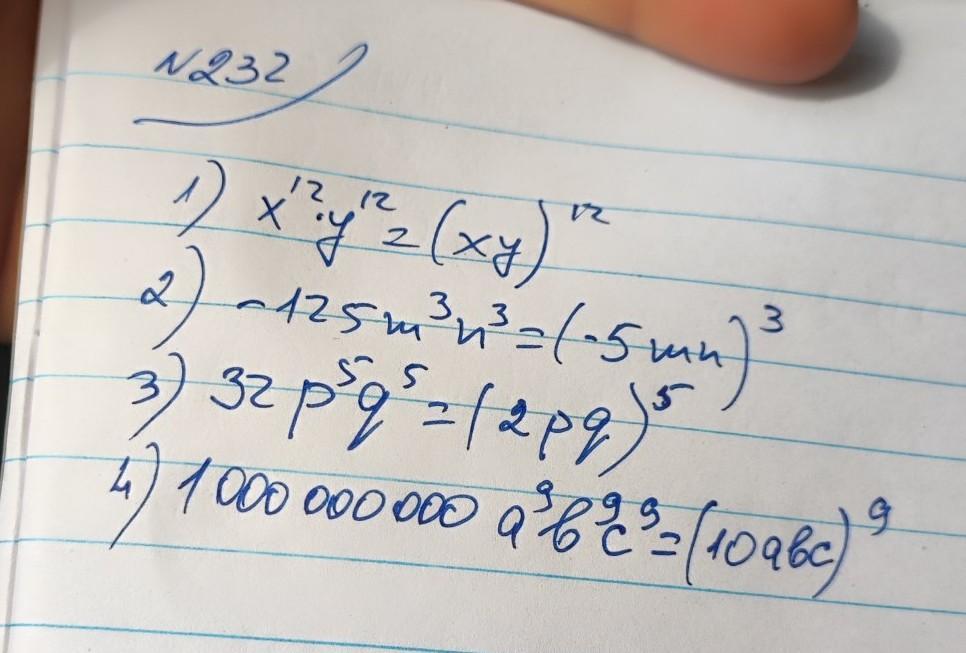 N232
1) x¹²·y¹² = (xy)¹²
2) -125m³n³ = (-5mn)³
3) 32p⁵q⁵ = (2pq)⁵
4) 1000 000 000 a⁹b⁹c⁹ = (10abc)⁹